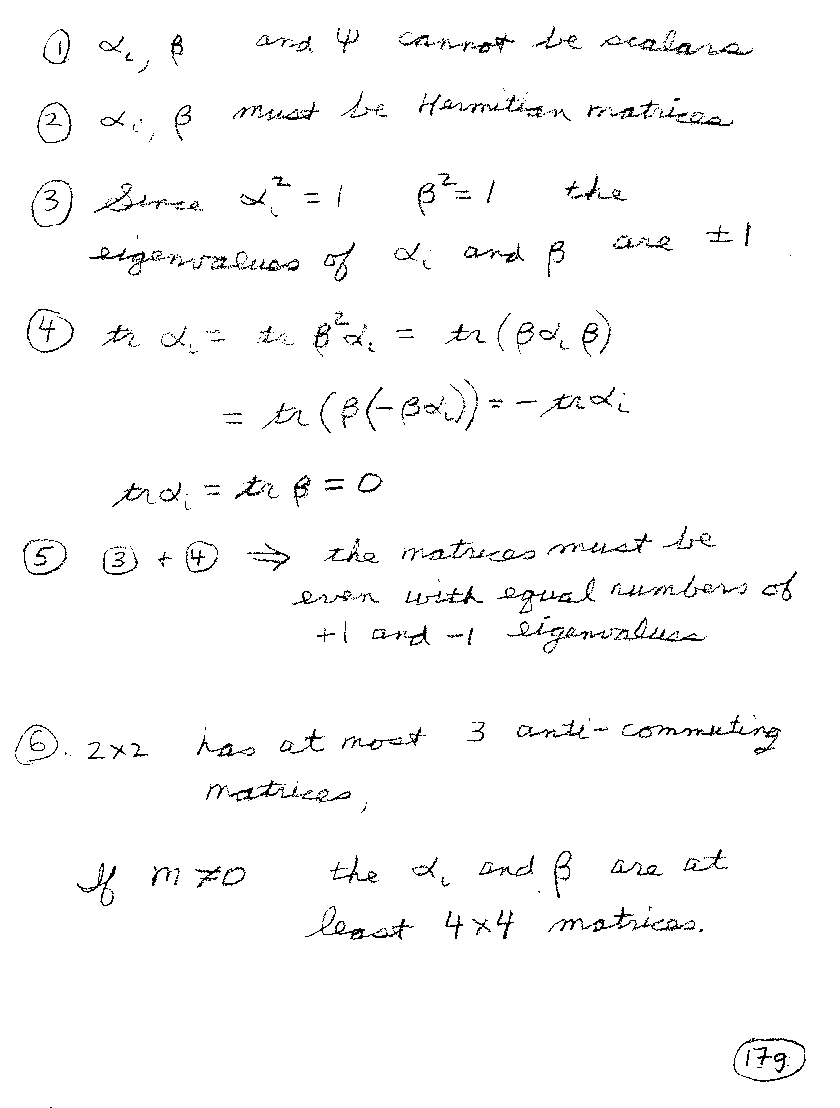 ① αᵢ, β and ψ cannot be scalars
② αᵢ, β must be Hermitian matrices
③ Since αᵢ² = 1 β² = 1 the
eigenvalues of αᵢ and β are ±1
④ tr αᵢ = tr β²αᵢ = tr(βαᵢβ)
= tr(β(-βαᵢ)) = - tr αᵢ
tr αᵢ = tr β = 0
⑤ ③ + ④ ⇒ the matrices must be
even with equal numbers of
+1 and -1 eigenvalues
⑥. 2×2 has at most 3 anti-commuting
matrices,
If m ≠ 0 the αᵢ and β are at
least 4×4 matrices.
179